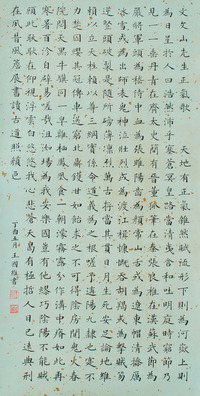 文文山先生正氣歌 天地有正氣雜然賦流形下則為河嶽上則
為日星於人曰浩然沛乎塞蒼冥皇路當清夷含和吐明庭時窮節乃
見一一垂丹青在齊太史簡在晉董狐筆在秦張良椎在漢蘇武節為
嚴將軍頭為嵇侍中血為張睢陽齒為顏常山舌或為遼東帽清操厲
冰雪或為出師表鬼神泣壯烈或為渡江楫慷慨吞胡羯或為擊賊笏
逆豎頭破裂是氣所磅礴凜烈萬古存當其貫日月生死安足論地維
賴以立天柱賴以尊三綱實係命道義為之根嗟予遘陽九隸也實不
力楚囚纓其冠傳車送窮北鼎鑊甘如飴求之不可得陰房闃鬼火春
院閟天黑牛驥同一皂雞棲鳳凰食一朝濛霧露分作溝中瘠如此再
寒暑百沴自辟易嗟哉沮洳場為我安樂國豈有他繆巧陰陽不能賊
顧此耿耿在仰視浮雲白悠悠我心悲蒼天曷有極哲人日已遠典刑
在夙昔風簷展書讀古道照顏色
丁酉五月